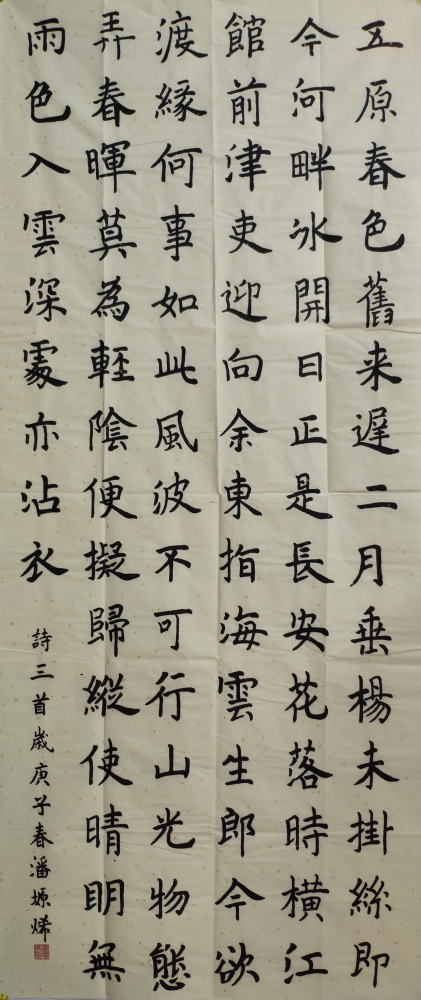 五原春色舊来遲二月垂楊未掛絲即
今河畔冰開日正是長安花落時橫江
館前津吏迎向余東指海雲生郎今欲
渡緣何事如此風波不可行山光物態
弄春暉莫為輕陰便擬歸縱使晴明無
雨色入雲深處亦沾衣
詩三首歲庚子春潘嫄烯